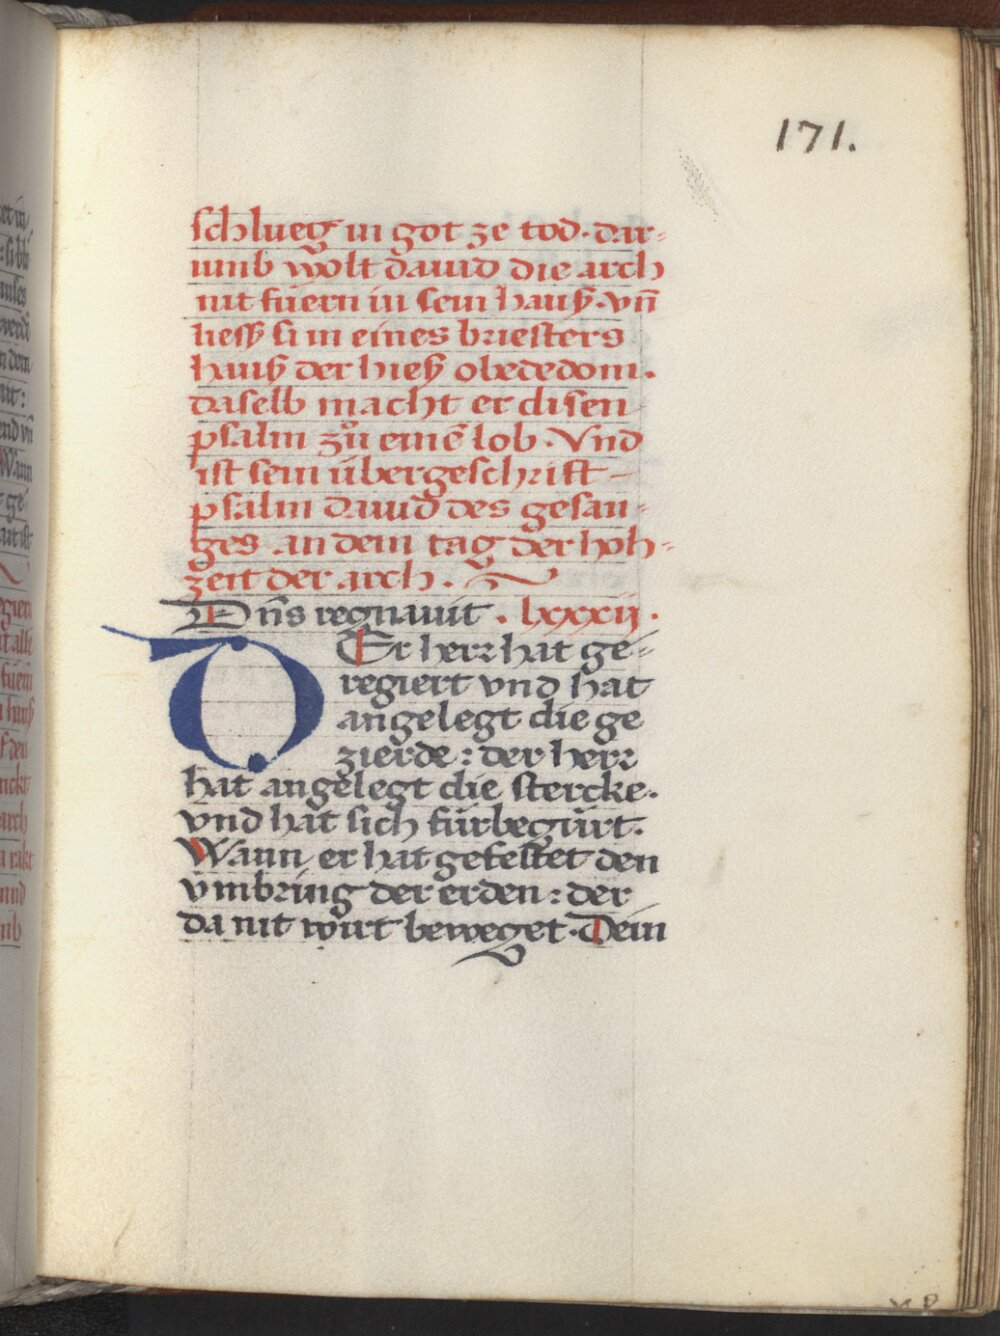 171.
schlueg in got ze tod. dar-
umb wolt dauid die arch
nit fuern in sein hauß. vn̄
liess si in eines briesters
hauß der hieß obededom.
daselb macht er disen
psalm zů einē lob. Vnd
ist sein übergeschrift
psalm dauid des gesan-
ges an dem tag der hoh-
zeit der arch.
Dn̄s regnauit. lxxxxij.
DEr herr hat ge-
regiert vnd hat
angelegt die ge
zierde: der herr
hat angelegt die stercke.
vnd hat sich fürbegürt.
Wann er hat gefestet den
vmbring der erden: der
da nit würt beweget. Dein